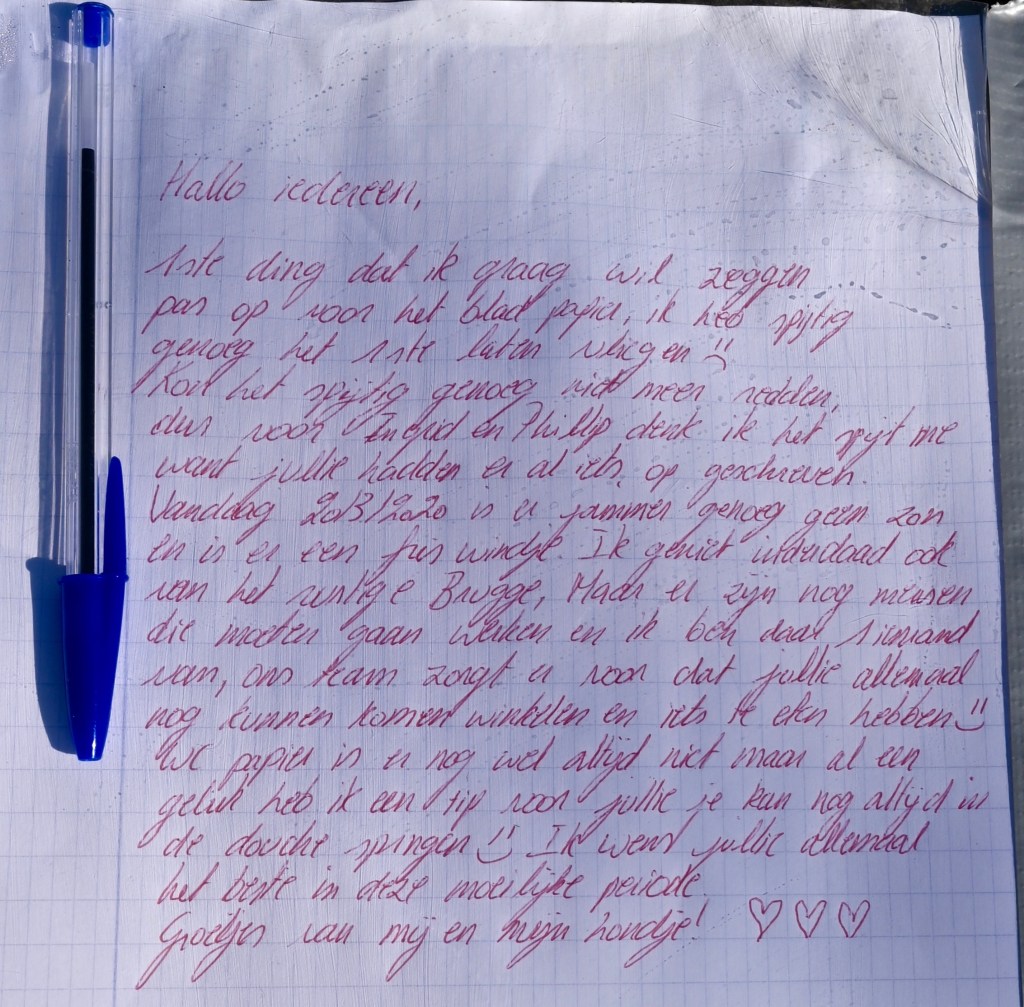 Hallo iedereen,
1ste ding dat ik graag wil zeggen
pas op voor het blad papier, ik heb spijtig
genoeg het 1ste laten vliegen :)
Kon het spijtig genoeg niet meer redden,
dus voor Ingrid en Phillip denk ik het spijt me
want jullie hadden er al iets op geschreven.
Vandaag 20/3/2020 is er jammer genoeg geen zon
en is er een fris windje. Ik geniet inderdaad ook
van het rustige Brugge, Maar er zijn nog mensen
die moeten gaan werken en ik ben daar 1 iemand
van, ons team zorgt er voor dat jullie allemaal
nog kunnen komen winkelen en iets te eten hebben :)
WC papier is er nog wel altijd niet maar al een
geluk heb ik een tip voor jullie je kan nog altijd in
de douche springen :) Ik wens jullie allemaal
het beste in deze moeilijke periode.
Groetjes van mij en mijn hondje! ♡♡♡